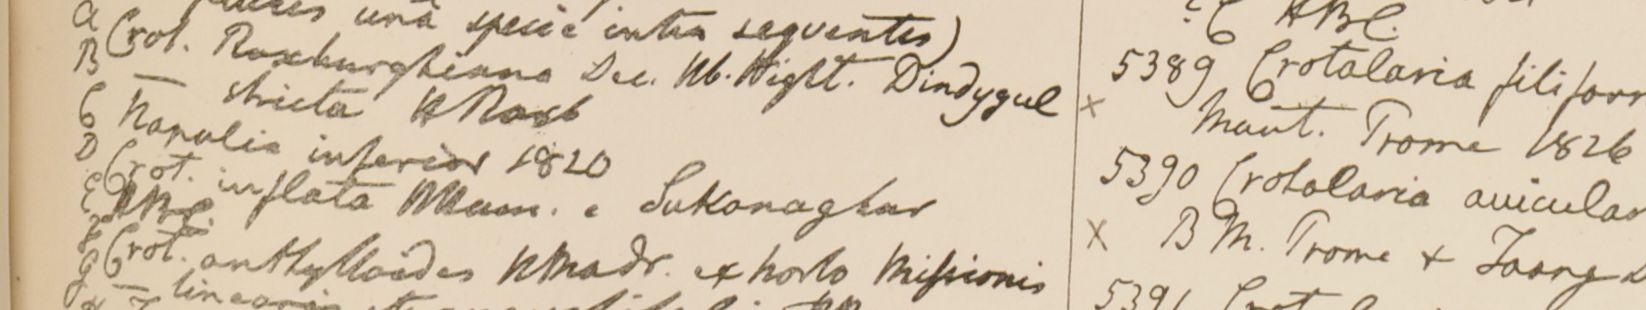 una specie intra sequentes)
A Crot. Roxburghiana Dec. Hb. Wight. Dindygul
B — stricta HRoxb
C Napalia inferior 1820
D Crot. inflata HHam. e Sukanaghur
E HBC.
F Crot. anthylloides HMadr. ex horto Missionis
G — linearis
C HBC.
5389 Crotalaria filiform
x Mont. Prome 1826
5390 Crotalaria avicular
x BM. Prome & Taong D
5391 Crotal